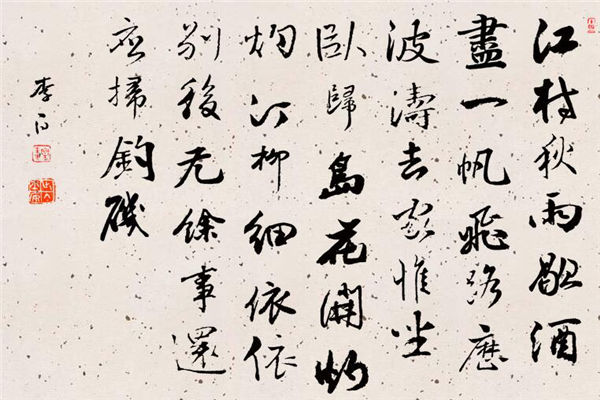 江村秋雨歇酒
盡一帆飛路歷
波濤去家惟坐
臥歸島花開灼
灼汀柳細依依
別後无餘事還
應掃釣磯
李白